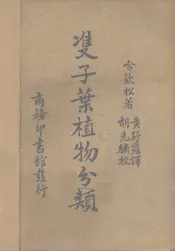 合欽松著
黄野蘿譯
胡先驌校
雙子葉植物分類
商務印書館發行